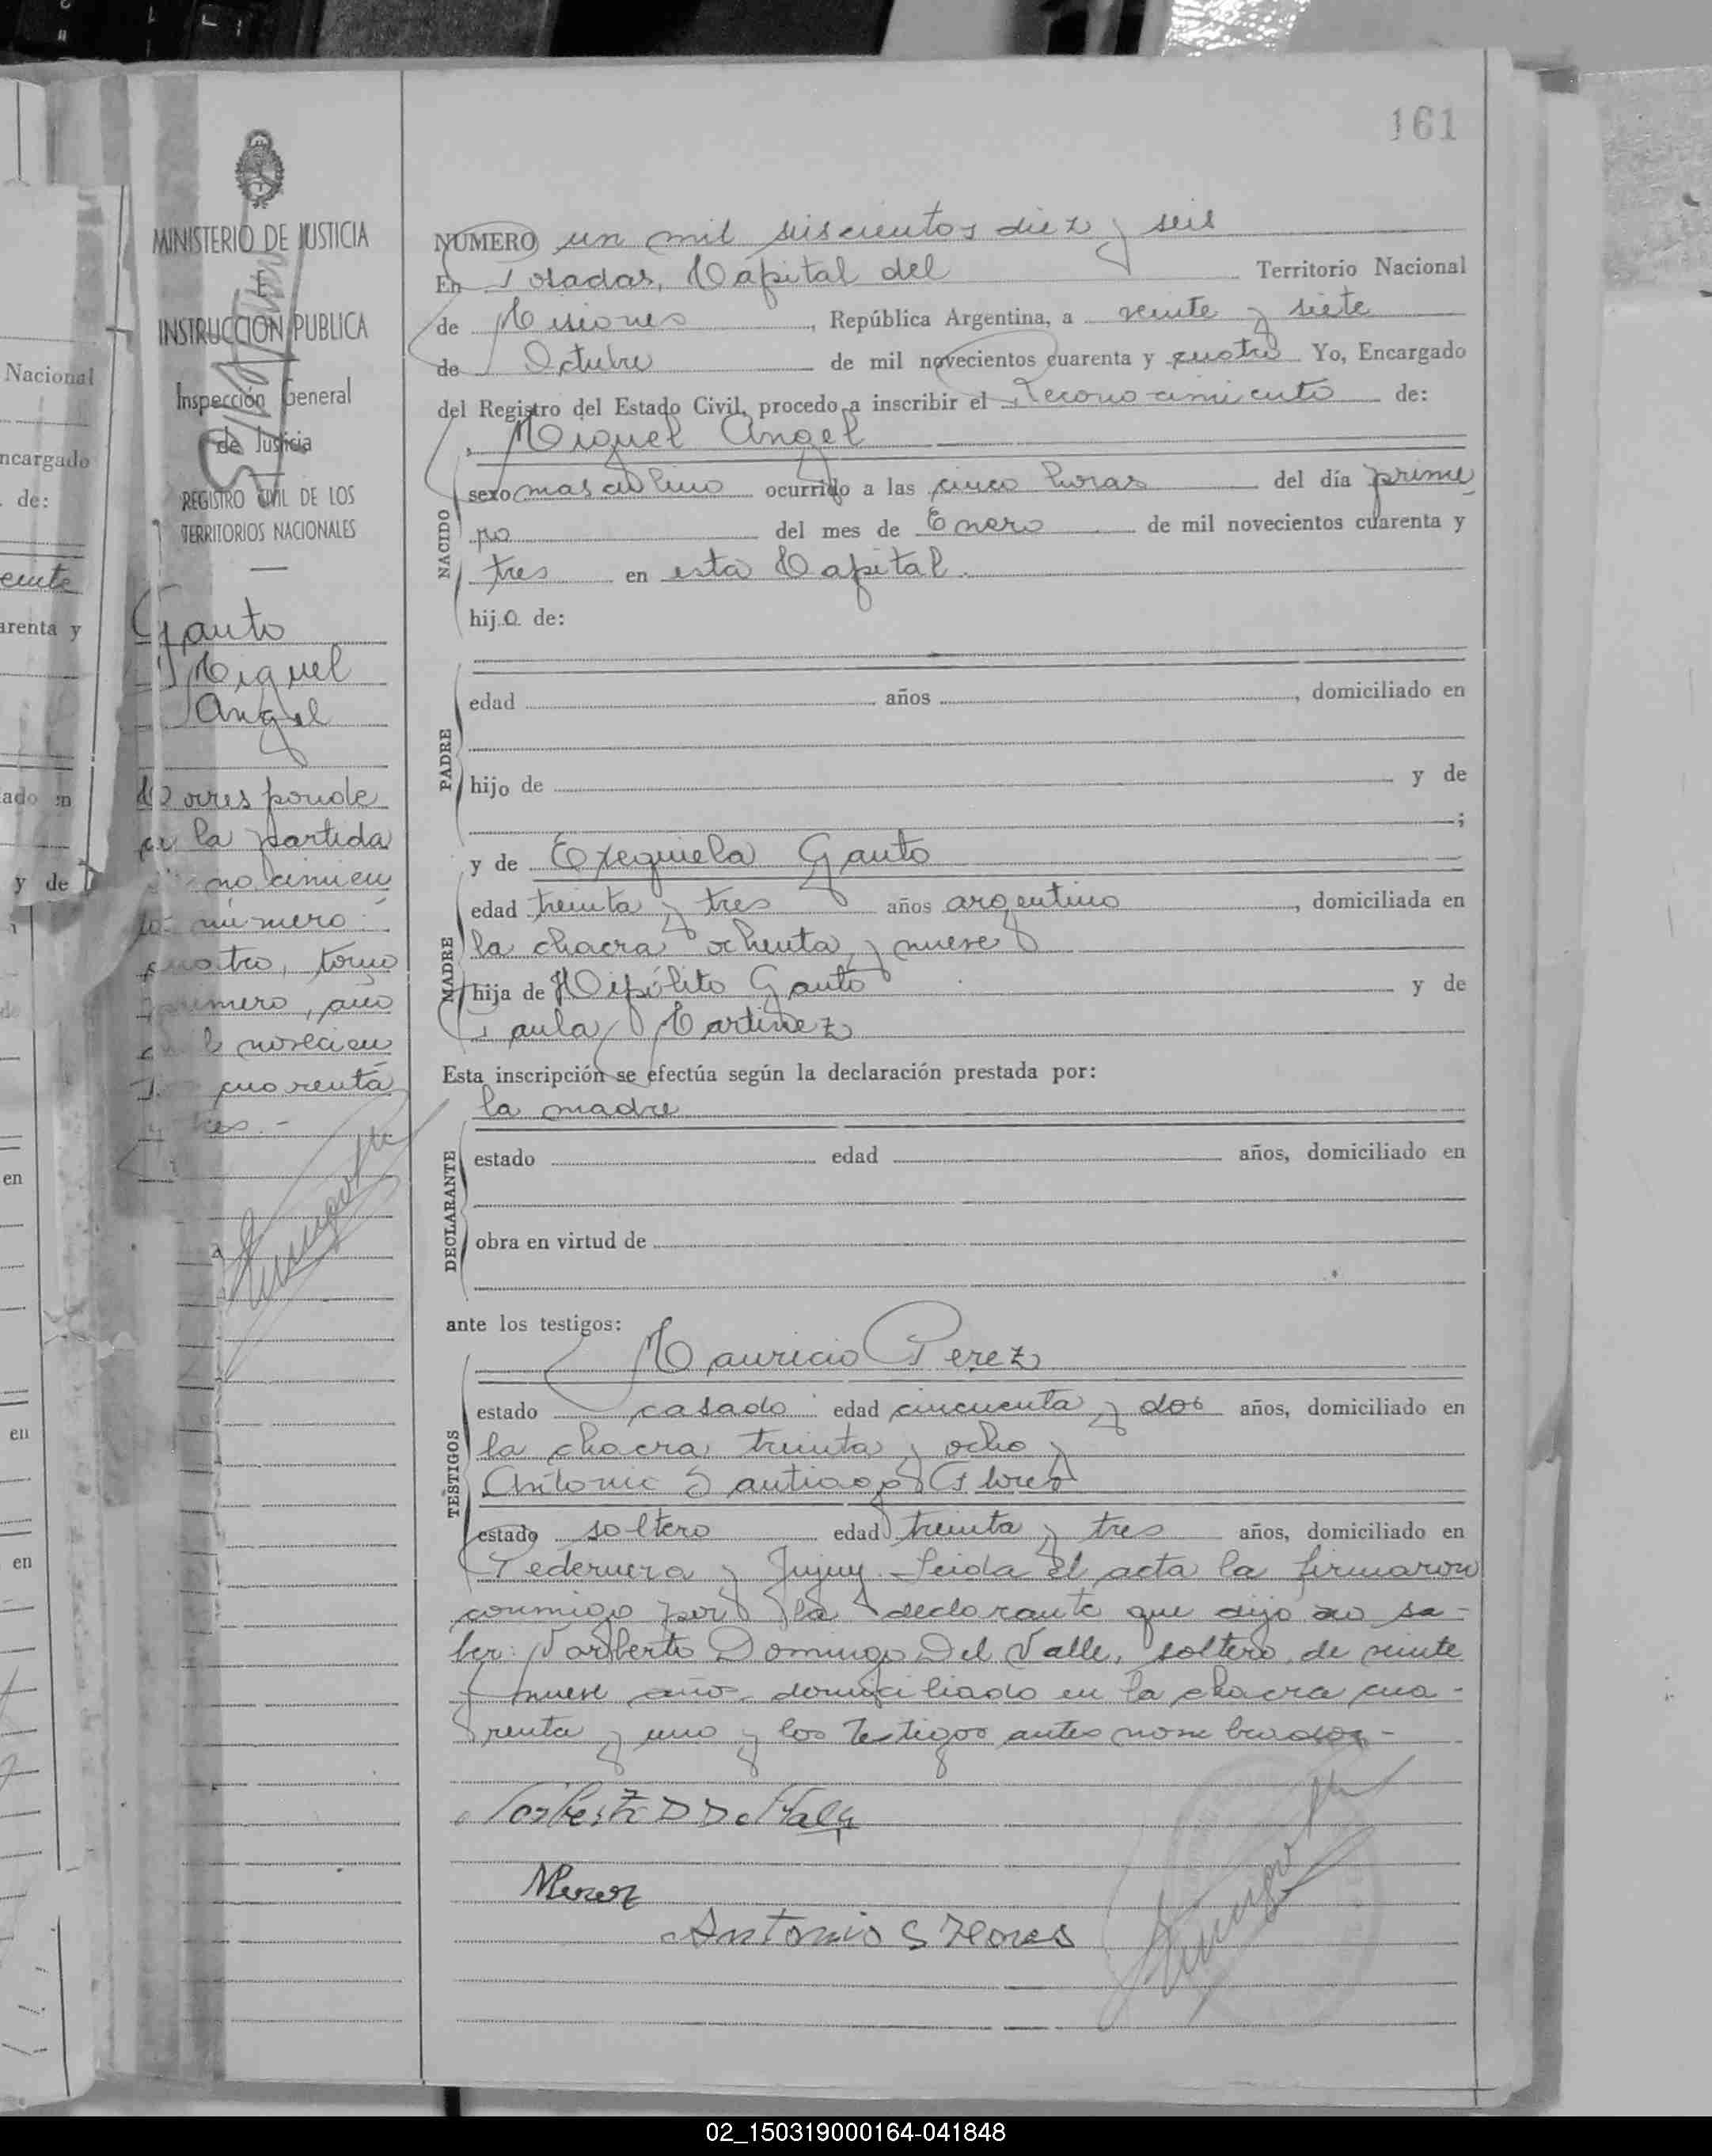 161
MINISTERIO DE JUSTICIA
E
INSTRUCCION PUBLICA
Inspección General
de Justicia
REGISTRO CIVIL DE LOS
TERRITORIOS NACIONALES
Gauto
Miguel
Angel
Corresponde
a la partida
nocimien
to número
cuatro, tomo
primero, año
mil novecien
cuarenta
y tres.-
NUMERO un mil seiscientos diez y seis
En Posadas, Capital del Territorio Nacional
de Misiones, República Argentina, a veinte y siete
de Octubre de mil novecientos cuarenta y cuatro Yo, Encargado
del Registro del Estado Civil, procedo a inscribir el Reconocimiento de:
Miguel Angel
NACIDO
sexo masculino ocurrido a las cinco horas del día prime
ro del mes de Enero de mil novecientos cuarenta y
tres en esta Capital.
hijo de:
PADRE
edad años , domiciliado en
hijo de y de
;
y de Exequiela Gauto
MADRE
edad treinta y tres años argentino, domiciliada en
la chacra ochenta y nueve
hija de Hipólito Gauto y de
Paula Martinez
Esta inscripción se efectúa según la declaración prestada por:
la madre
DECLARANTE
estado edad años, domiciliado en
obra en virtud de
ante los testigos:
Mauricio Perez
TESTIGOS
estado casado edad cincuenta y dos años, domiciliado en
la chacra treinta y ocho y
Antonio Santiago Flores
estado soltero edad treinta y tres años, domiciliado en
Pedernera y Jujuy. Leida el acta la firmaron
conmigo por la declarante que dijo no sa-
ber: Norberto Domingo Del Valle, soltero, de veinte
y nueve años, domiciliado en la chacra cua-
renta y uno y los testigos antes nombrados.-
Norberto D Del Valle
MPerez
Antonio S Flores
Nacional
encargado
de:
veinte
arenta y
y de
en
en
en
02_150319000164-041848